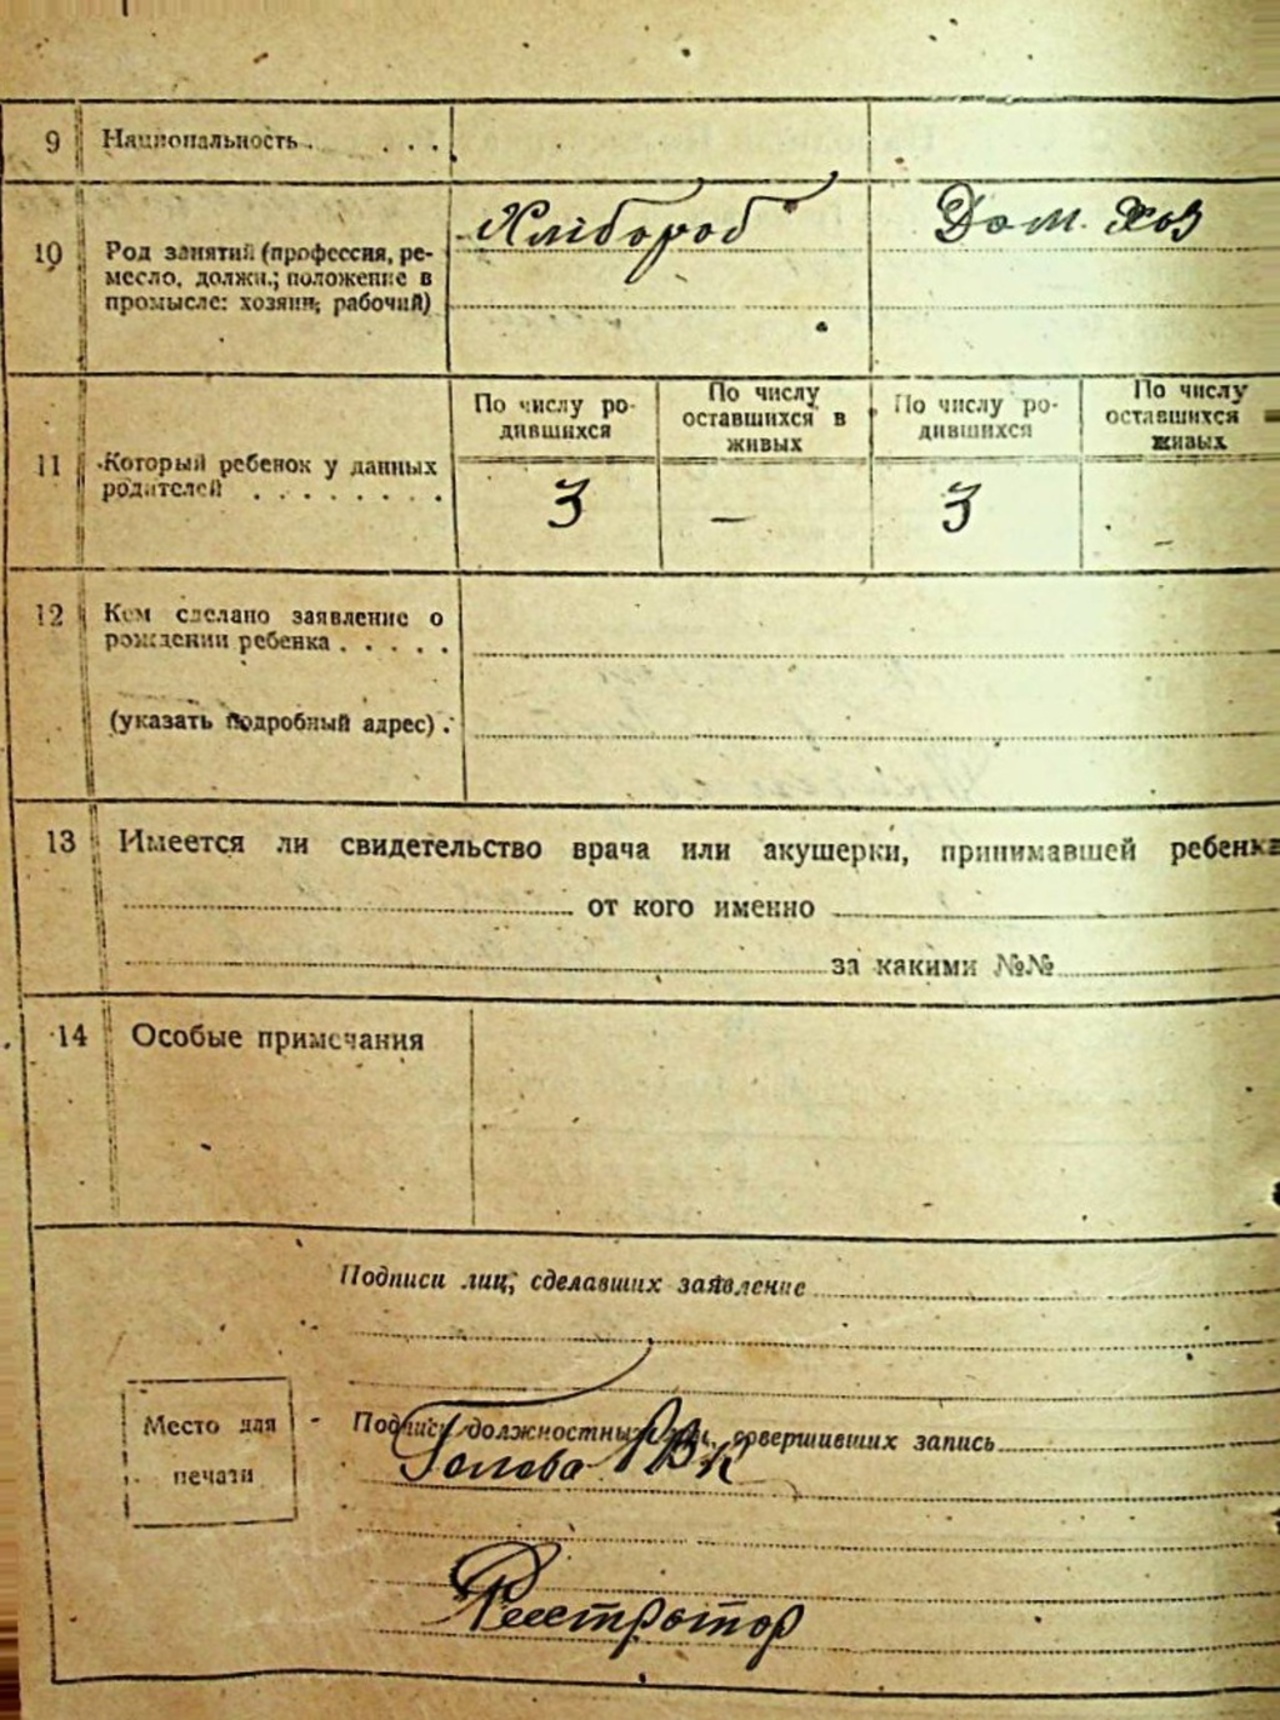 9 Национальность . . . .
Хлібороб Дом. хоз
10 Род занятий (профессия, ре-
месло, должн.; положение в
промысле: хозяин, рабочий)
По числу ро-
дившихся
По числу
оставшихся в
живых
По числу ро-
дившихся
По числу
оставшихся в
живых
11 Который ребенок у данных
родителей . . . . . . . .
3 — 3 —
12 Кем сделано заявление о
рождении ребенка . . . . .
(указать подробный адрес) .
13 Имеется ли свидетельство врача или акушерки, принимавшей ребенка
от кого именно
за какими №№
14 Особые примечания
Подписи лиц, сделавших заявление
Место для
печати
Подписи должностных лиц, совершивших запись
Голова
Реєстратор